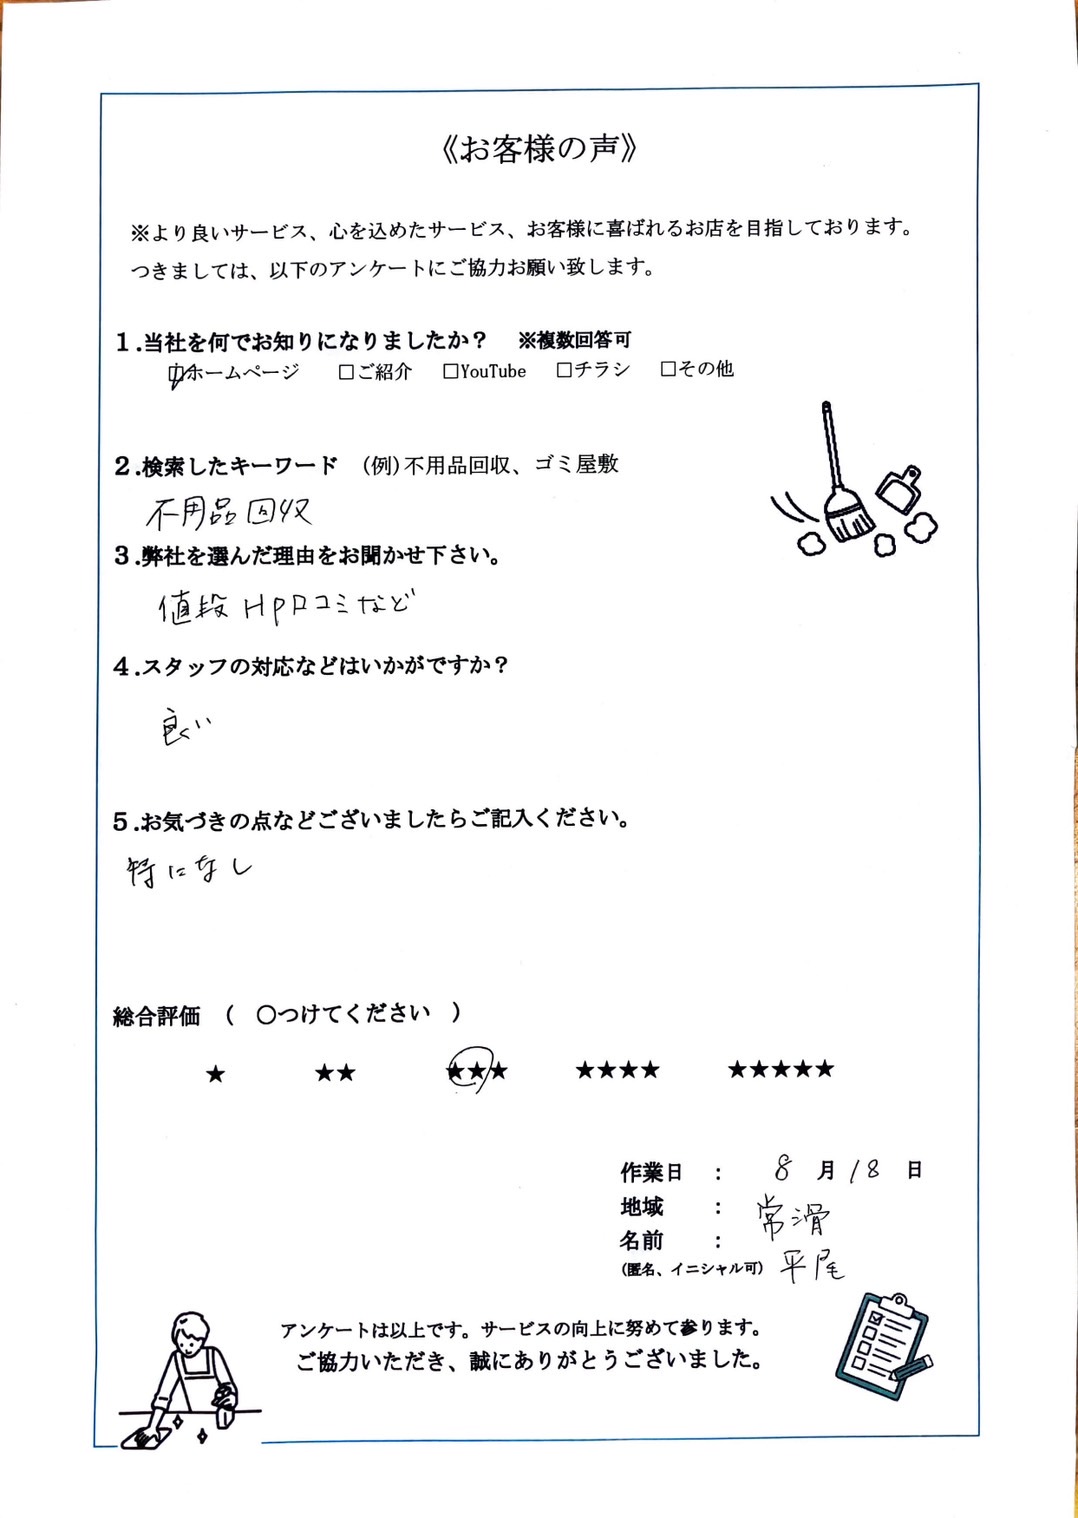 《お客様の声》
※より良いサービス、心を込めたサービス、お客様に喜ばれるお店を目指しております。
つきましては、以下のアンケートにご協力お願い致します。
1.当社を何でお知りになりましたか？　※複数回答可
☑ホームページ　□ご紹介　□YouTube　□チラシ　□その他
2.検索したキーワード　(例)不用品回収、ゴミ屋敷
不用品回収
3.弊社を選んだ理由をお聞かせ下さい。
値段 HP口コミなど
4.スタッフの対応などはいかがですか？
良い
5.お気づきの点などございましたらご記入ください。
特になし
総合評価　(　〇つけてください　)
★　★★　★★★　★★★★　★★★★★
作業日　：　8月18日
地域　：　常滑
名前　：
(匿名、イニシャル可)　平尾
アンケートは以上です。サービスの向上に努めて参ります。
ご協力いただき、誠にありがとうございました。